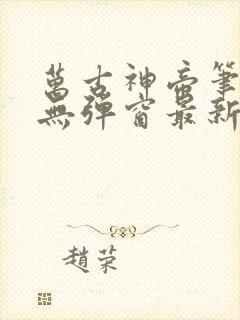 萬古神帝筆
無彈窗最新
趙荣